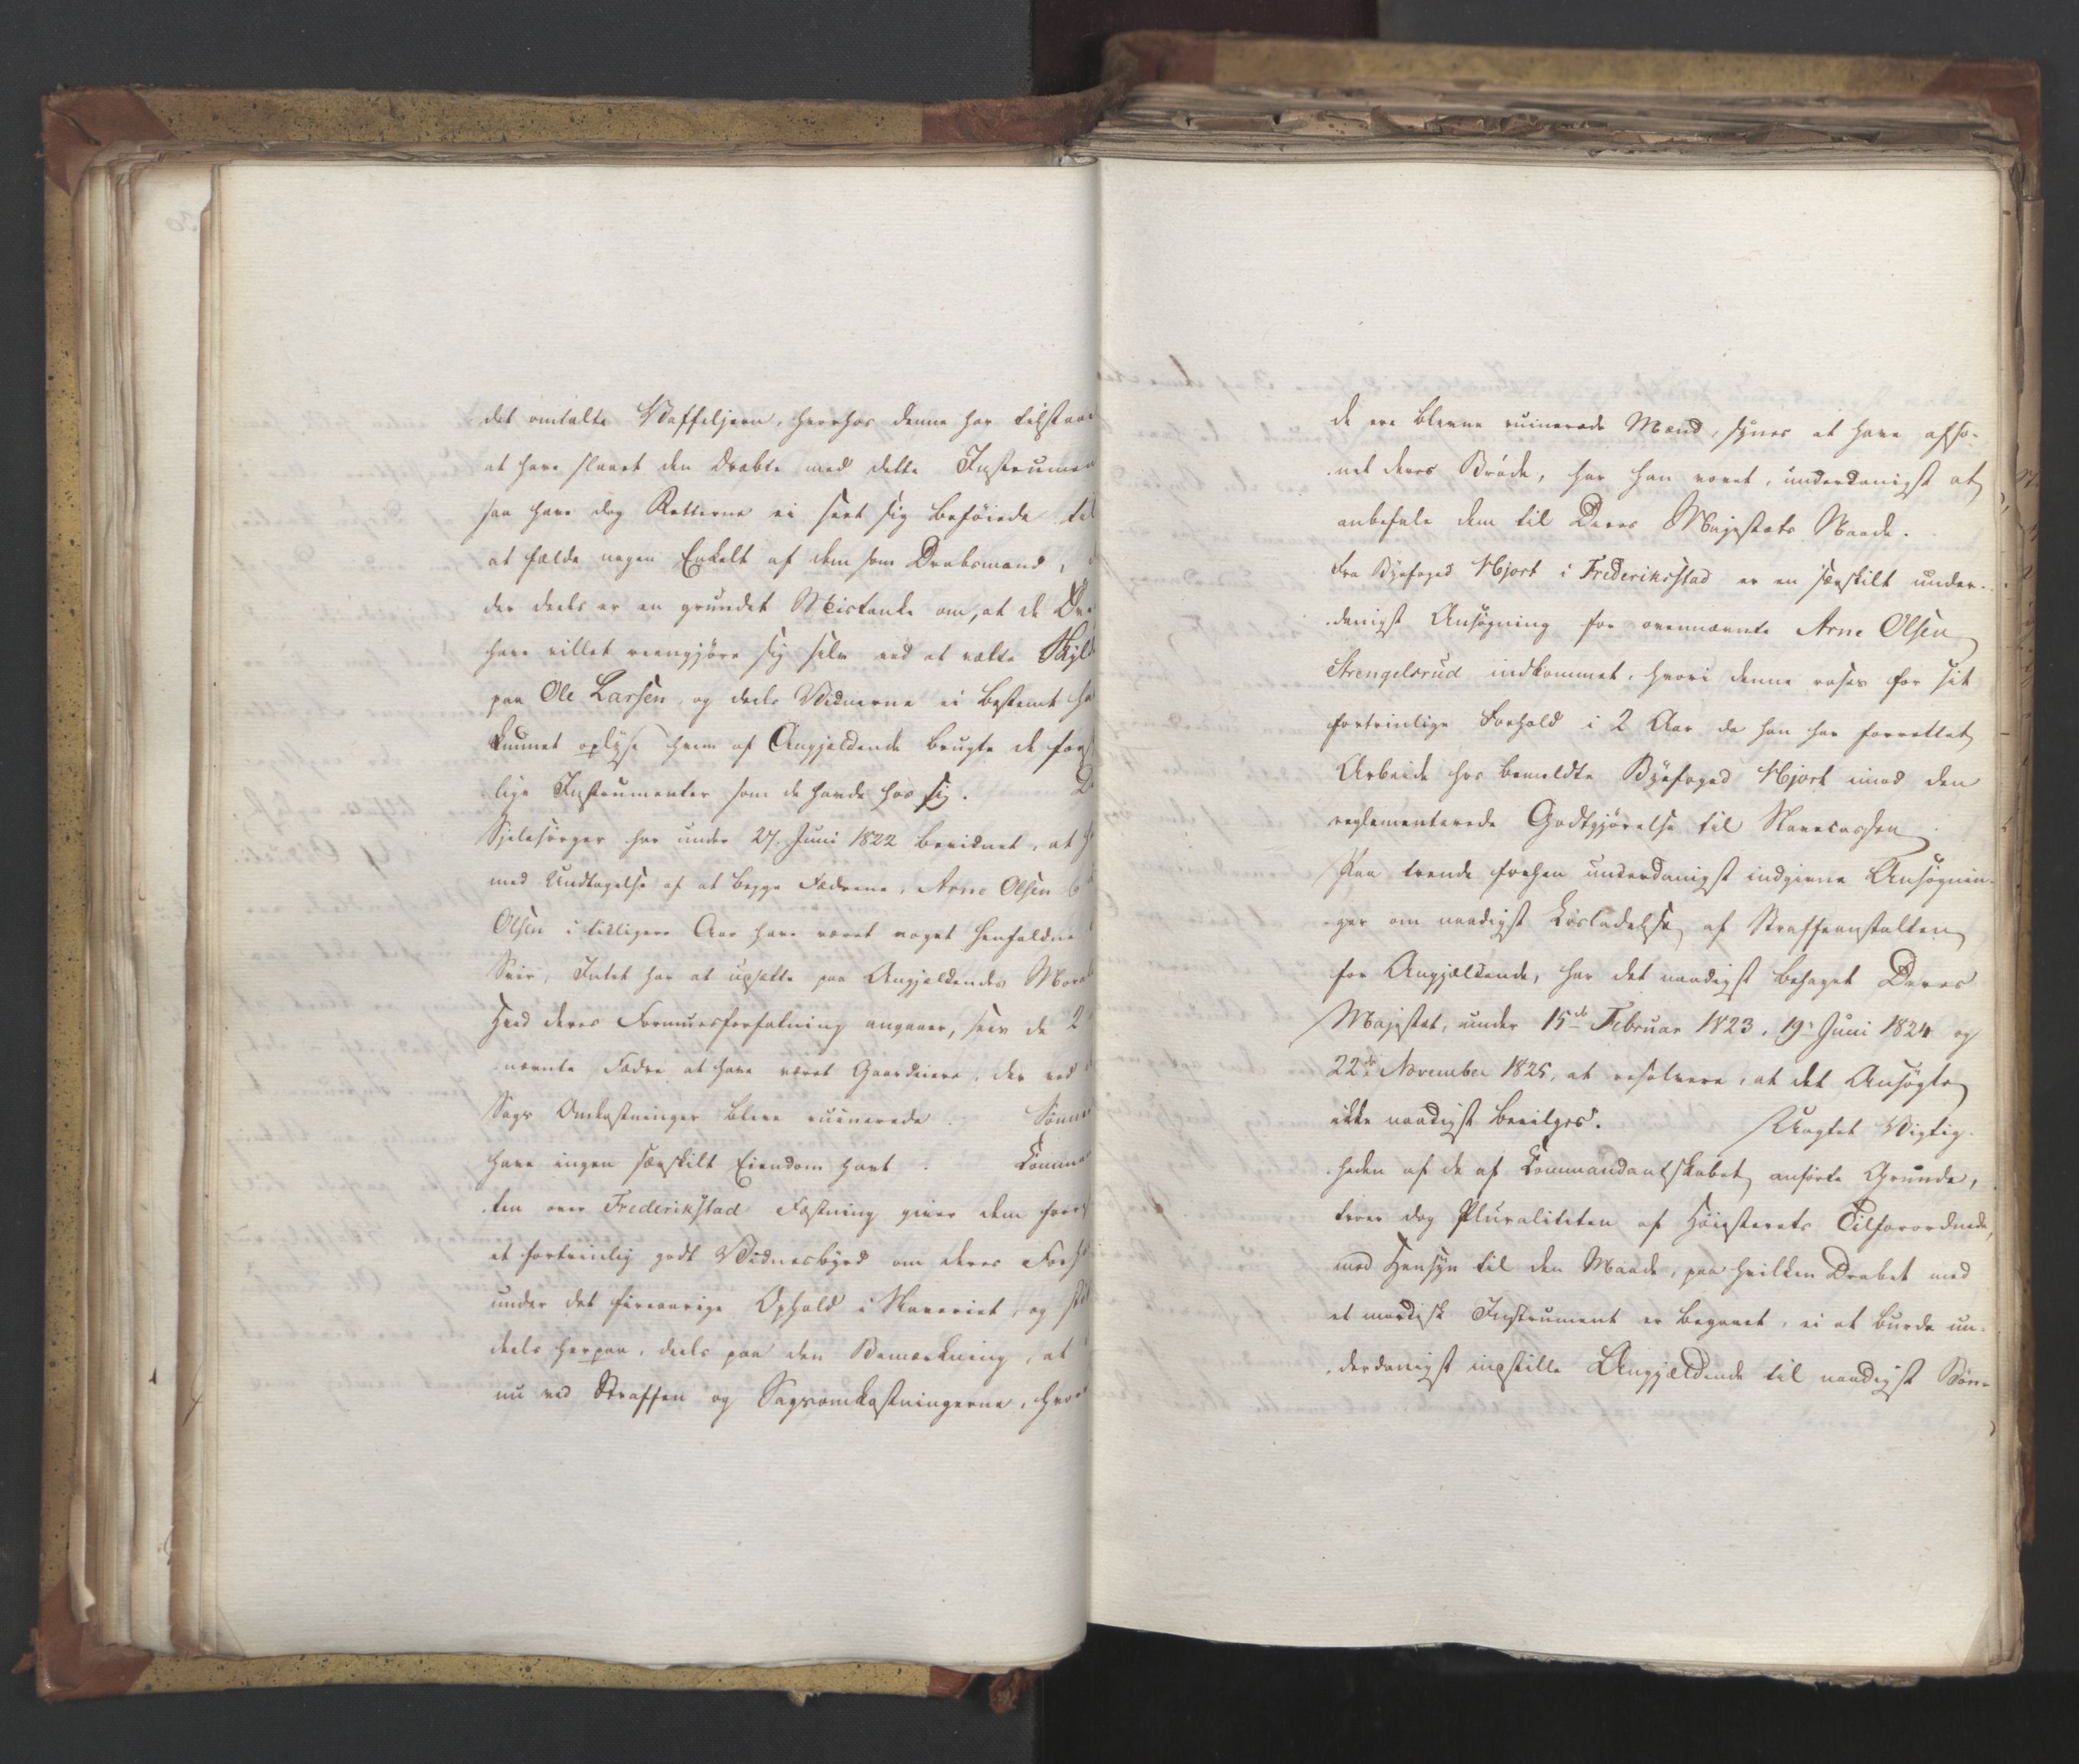 det omtalte Vaffeljern, hvorhos denne har tilstaa
at have slaaet den dræbte med dette Instrumen
saa have dog Retterne ei seet sig beføiede til
at fælde nogen Enkelt af dem som Drabsmand,
der deels er en grundet Mistanke om, at de
have villet reengjøre sig selv ved at vælte Skyld
paa Ole Larsen, og deels Vidnerne ei bestemt ha
kunnet oplyse hvem af Angjældende brugte de for
lige Instrumenter som de havde hos sig.
Sjelesørger har under 27. Juni 1822 bevidnet, at
med Undtagelse af at begge Fædrene, Arne Olsen
Olsen i tidligere Aar have været noget henfaldne
Svir, Intet har at udsætte paa Angjældendes Moral
Hvad deres Formuesforfatning angaaer, synes de 2
nævnte Fædre at have været Gaardeiere, der ved
Sags Omkostninger bleve ruinerede. Sønne
have ingen særskilt Eiendom havt. Comman
ten over Frederikstad Fæstning giver dem
et fortrinlig godt Vidnesbyrd om deres Forh
under det fireaarige Ophold i Slaveriet, og
deels herpaa, deels paa den Bemærkning, at
nu ved Straffen og Sagsomkostningerne, hvor
de ere blevne ruinerede Mænd, synes at have afso-
net deres Brøde, har han vovet, underdanigst at
anbefale dem til Deres Majestæts Naade.
Fra Byefoged Hjort i Frederikstad er en særskilt under-
danigst Ansøgning for ovennævnte Arne Olsen
Strengelsrud indkommet, hvori denne roses for sit
fortrinlige Forhold i 2 Aar da han har forrettet
Arbeide hos bemeldte Byefoged Hjort imod den
reglementerede Godtgjørelse til Slavecassen
Paa trende forhen underdanigst indgivne Ansøgnin-
ger om naadigst Løsladelse af Straffeanstalten
for Angjældende, har det naadigst behaget Deres
Majestæt, under 15de Februar 1823, 19. Juni 1824 og
22de November 1825, at resolvere, at det Ansøgte
ikke naadigst bevilges. Uagtet Vigtig-
heden af de af Commandantskabet anførte Grunde,
troer dog Pluraliteten af Høiesterets Tilforordnede,
med Hensyn til den Maade, paa hvilken Drabet med
et mordisk Instrument er begaaet, ei at burde un-
derdanigst indstille Angjældende til naadigst Bøn-